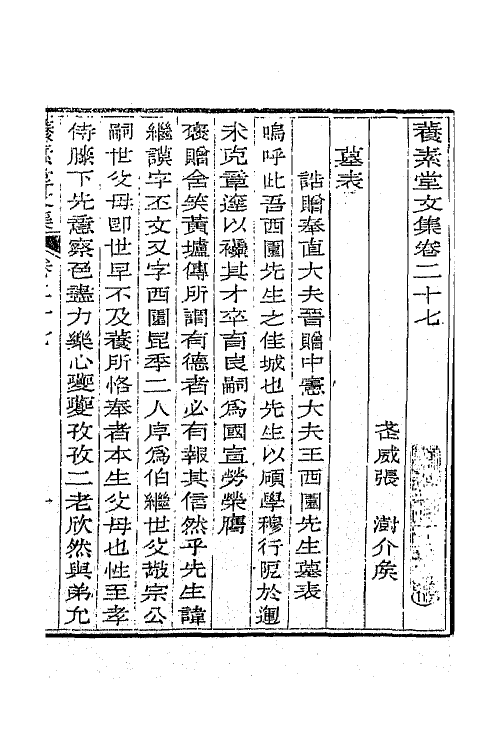 養素堂文集卷二十七
武威張　澍介矦
墓表
誥贈奉直大夫晉贈中憲大夫王西園先生墓表
嗚呼此吾西園先生之佳城也先生以碩學穆行阨於運
未克章逹以襮其才卒育良嗣爲國宣勞榮膺
褒贈含笑黃壚傳所謂有德者必有報其信然乎先生諱
繼謨字丕文又字西園昆季二人序爲伯繼世父敬宗公
嗣世父母卽世早不及養所恪奉者本生父母也性至孝
侍膝下先意察色盡力樂心夔夔孜孜二老欣然與弟允
養素堂文集
卷二十七
一